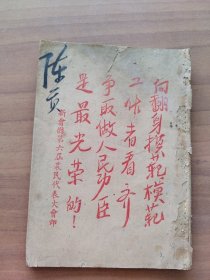 向翻身摸范模范
工作者看齐
争取做人民功臣
是最光荣的！
新會縣第六届農民代表大會印
陈